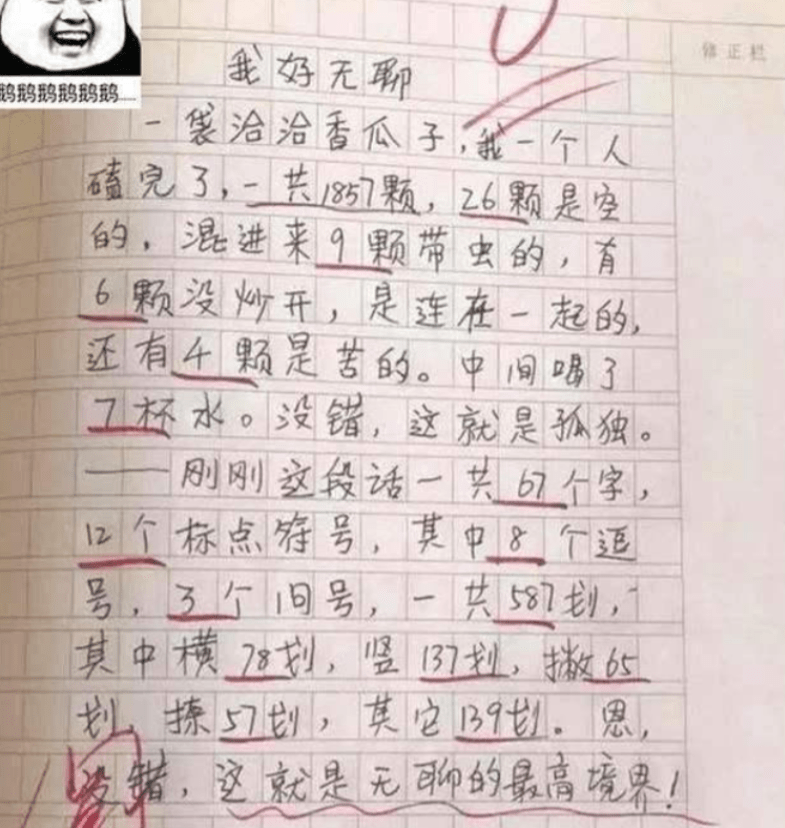 鹅鹅鹅鹅鹅鹅……
修正栏
我好无聊
一袋洽洽香瓜子，我一个人
磕完了，一共1857颗，26颗是空
的，混进来9颗带虫的，有
6颗没炒开，是连在一起的，
还有4颗是苦的。中间喝了
7杯水。没错，这就是孤独。
——刚刚这段话一共67个字，
12个标点符号，其中8个逗
号，3个问号，一共587划，
其中横78划，竖137划，撇65
划，捺57划，其它139划。恩，
没错，这就是无聊的最高境界！